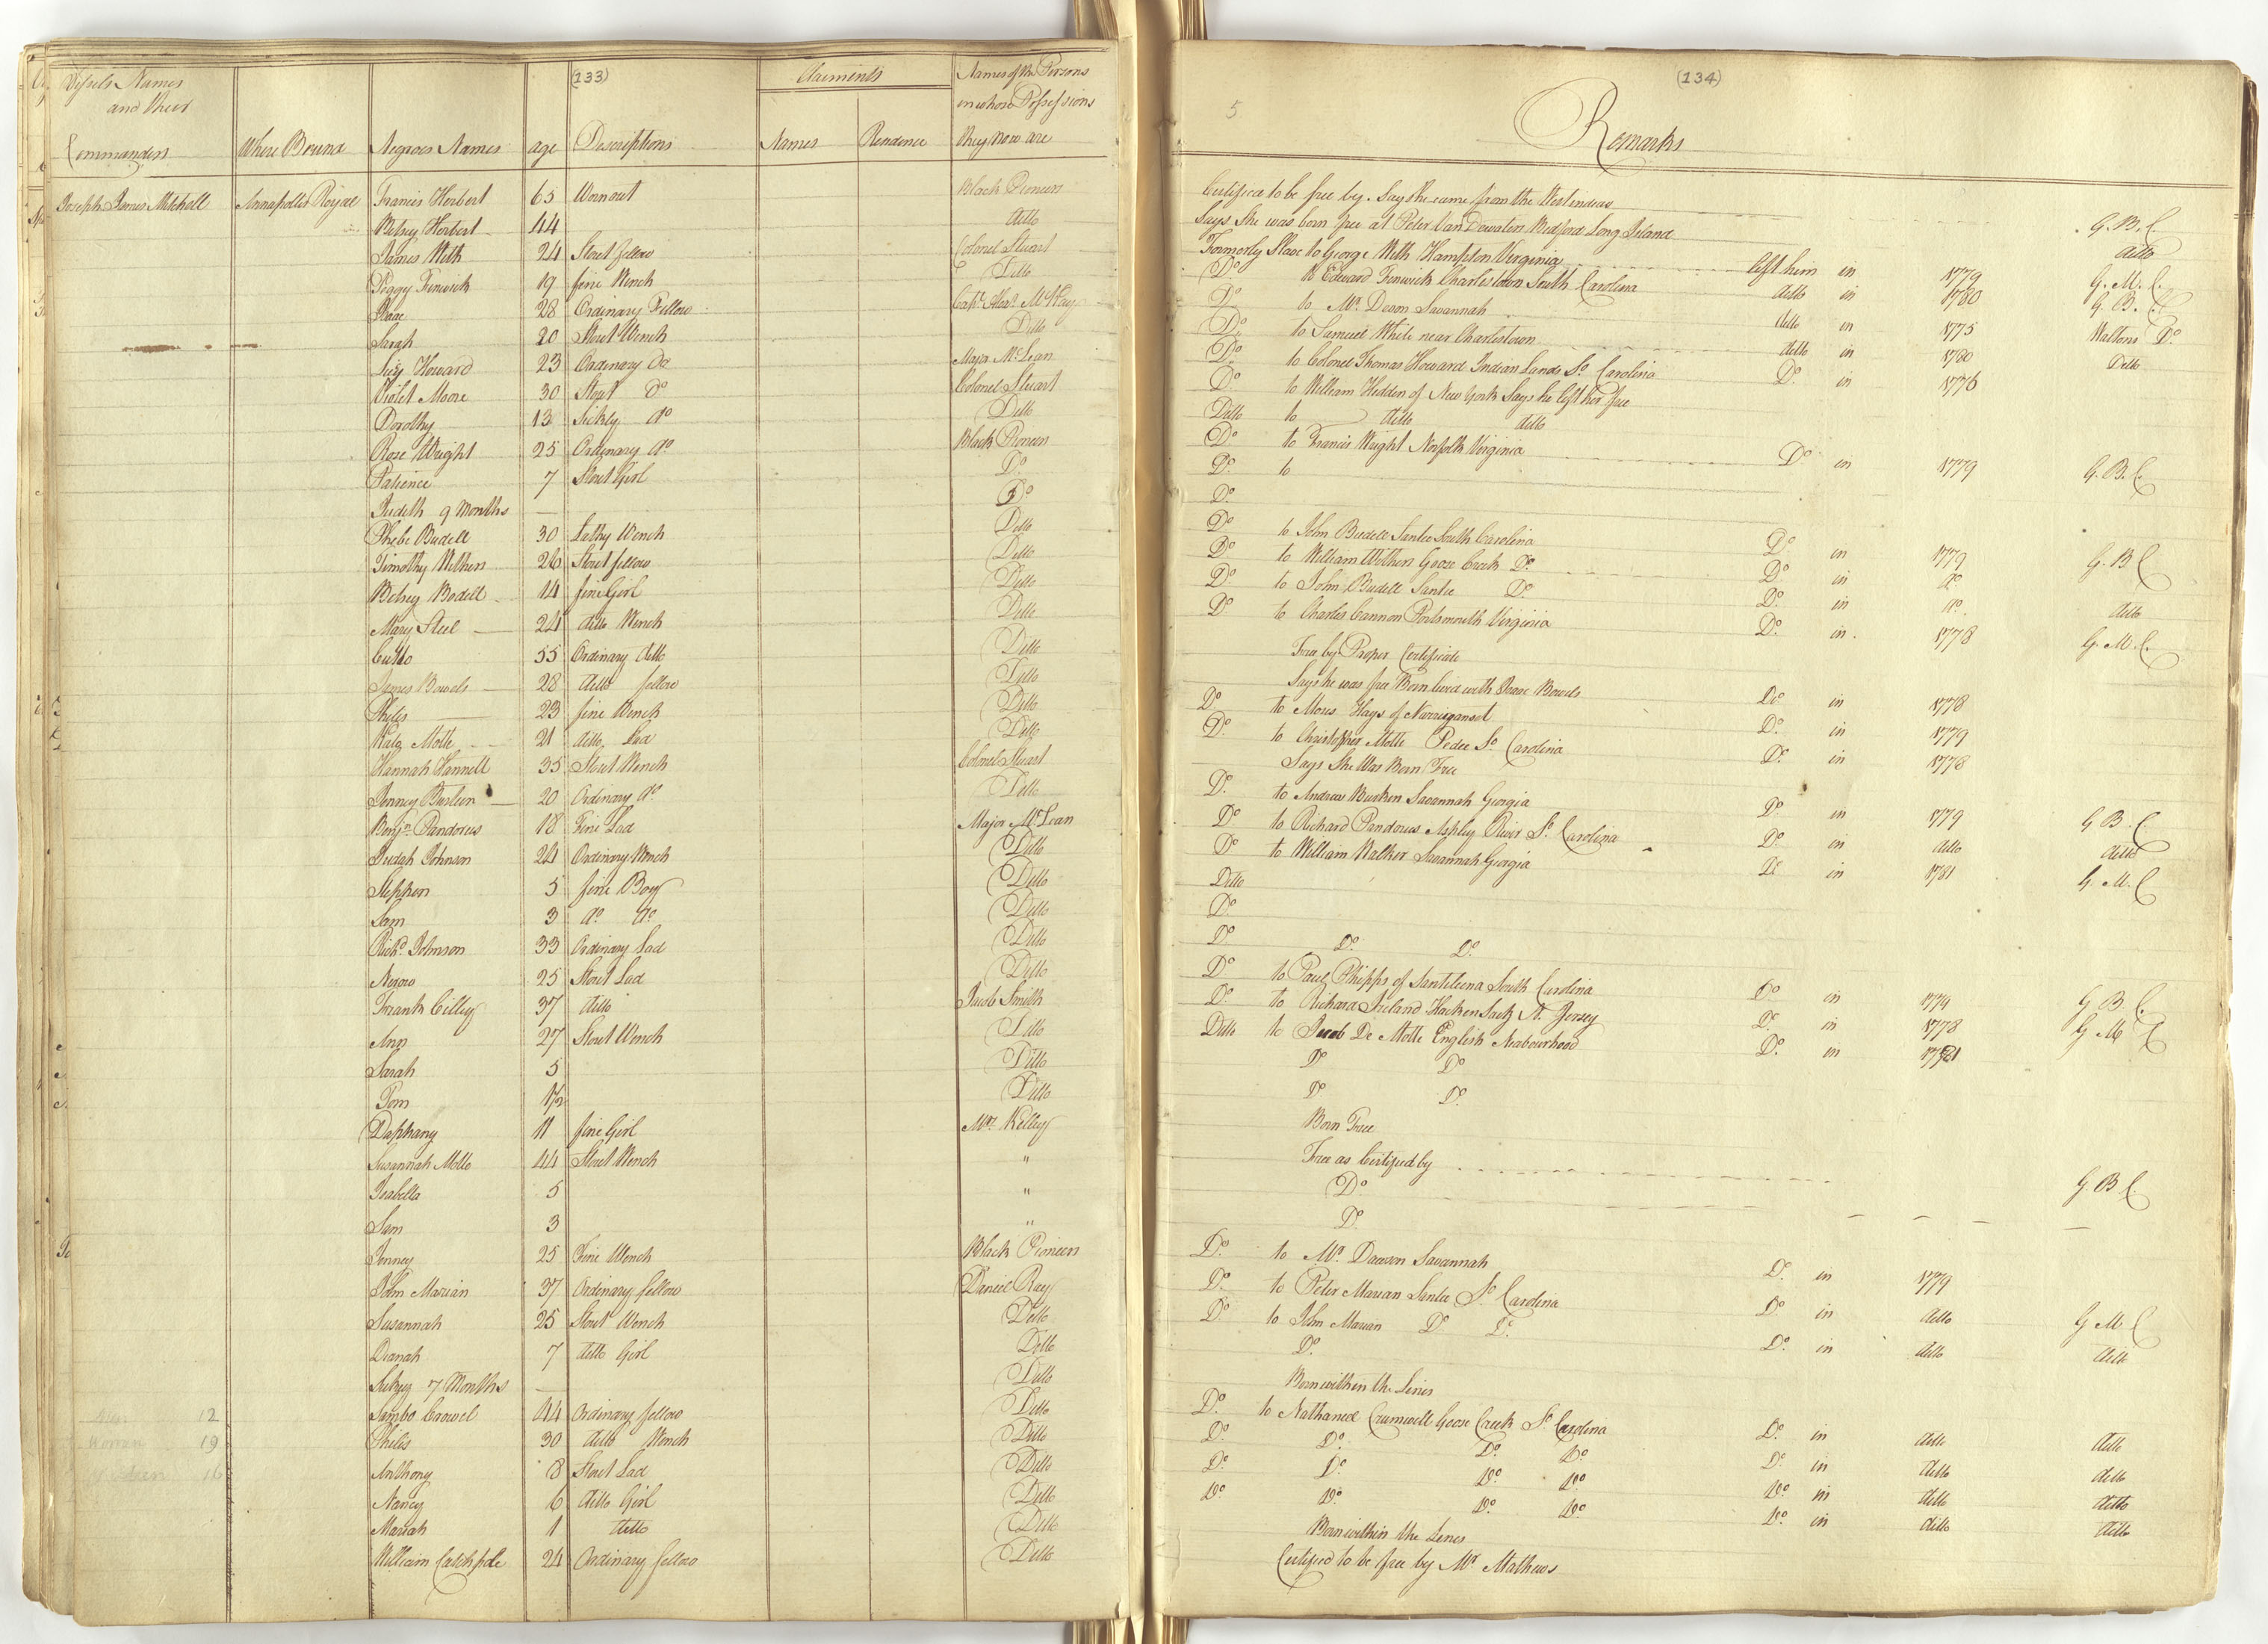 (133)
Vessels Names Claiments Names of the Persons
and their in whose Possessions
Commanders Where Bound Negroes Names age Descriptions Names Residence they Now are
Joseph James Mitchell Annapollis Royal Francis Herbert 65 Wornout Black Pioneers
Betsey Herbert 44 ditto
James With 24 Stout fellow Colonel Stuart
Peggy Fenwick 19 fine Wench Ditto
Isaac 28 Ordinary Fellow Capt. McKay
Sarah 20 Stout Wench Ditto
Howard 23 Ordinary Do Major McLean
Violet Moore 30 Stout Do Colonel Stuart
Dorothy 13 Sickly do Ditto
Rose Wright 25 Ordinary do Black Pioneers
Patience 7 Stout Girl Do
Judith 9 Months Do
Phebe Budell 30 Lathy Wench Ditto
Timothy Withers 26 Stout fellow Ditto
Betsey Bodell 14 fine Girl Ditto
Mary Steel 24 ditto Wench Ditto
55 Ordinary ditto Ditto
James Bowels 28 ditto fellow Ditto
Philis 23 fine Wench Ditto
Motte 21 ditto Lad Ditto
Hannah Hannell 35 Stout Wench Colonel Stuart
Jenney 20 Ordinary do Ditto
Benjn. Pandorus 18 Fine Lad Major McLean
Judah Johnson 24 Ordinary Wench Ditto
Stephen 5 fine Boy Ditto
Sam 3 do do Ditto
Richd. Johnson 33 Ordinary Lad Ditto
25 Stout Lad Ditto
Frank Cilley 37 ditto Jacob Smith
Ann 27 Stout Wench Ditto
Sarah 5 Ditto
Tom 1½ Ditto
Daphany 11 fine Girl Mr. Kelley
Susannah Motte 44 Stout Wench "
Isabella 5 "
Sam 3 "
Jenney 25 Fine Wench Black Pioneers
John Marian 37 Ordinary fellow Daniel Ray
Susannah 25 Stout Wench Ditto
Dianah 7 ditto Girl Ditto
Sukey 7 Months Ditto
12 Sambo Crowel 44 Ordinary fellow Ditto
Women 19 Philis 30 ditto Wench Ditto
16 Anthony 8 Stout Lad Ditto
Nancy 6 ditto Girl Ditto
Mariah 1 ditto Ditto
William Catchpole 24 Ordinary fellow Ditto
(134)
5
Remarks
Certified to be free by. Says he came from the Westindeas G. B. C.
Says She was born free at Peter Van Dewaters Bedford Long Island ditto
Formorly Slave to George With Hampton Virginia left him in 1779 G. M. C.
Do to Edward Fenwick Charlestown South Carolina ditto in 1780 G. B. C.
Do to Mr. Savannah ditto in 1775 Waltons Do
Do to Samuel White near Charlestown ditto in 1780 Ditto
Do to Colonel Thomas Howard Indian Lands So Carolina Do in 1776
Do to William Hedden of New York Says he left her free
Ditto to ditto ditto
Do to Francis Wright Norfolk Virginia Do in 1779 G. B. C.
Do to
Do
Do to John Budell Santee South Carolina Do in 1779 G. B C
Do to William Withers Goose Creek Do Do in do
Do to John Budell Santee Do Do in do ditto
Do to Charles Cannon Portsmouth Virginia Do in 1778 G. M. C.
Free by Proper Certificate
Says he was free Born lived with Isaac Bowels Do in 1778
Do to Moses Hays of Narriganset Do in 1779
Do to Christopher Motte Pedee So Carolina Do in 1778
Says She Was Born Free
Do to Andrew Savannah Georgia Do in 1779 G B C.
Do to Richard Pandorus Ashley River So Carolina Do in ditto ditto
Do to William Walker Savannah Georgia Do in 1781 G. M. C
Ditto
Do
Do Do Do
Do to Paul Phipps of South Carolina Do in 1779 G B C.
Do to Richard Ireland Hackensack N. Jersey Do in 1778 G M C
Ditto to Jacob De Motte English Neabourhood Do in
Do Do
Do Do
Born Free
Free as Certified by G. B C
Do
Do
Do to Mr. Dawson Savannah Do in 1779
Do to Peter Marian Santee So Carolina Do in ditto G M C
Do to John Marian Do Do Do in ditto ditto
Do
Born within the Lines
Do to Nathaniel Crumwell Goose Creek So Carolina Do in ditto ditto
Do Do Do Do Do in ditto ditto
Do Do Do Do Do in ditto ditto
Do Do Do Do Do in ditto ditto
Born within the Lines
Certified to be free by Mr Mathews